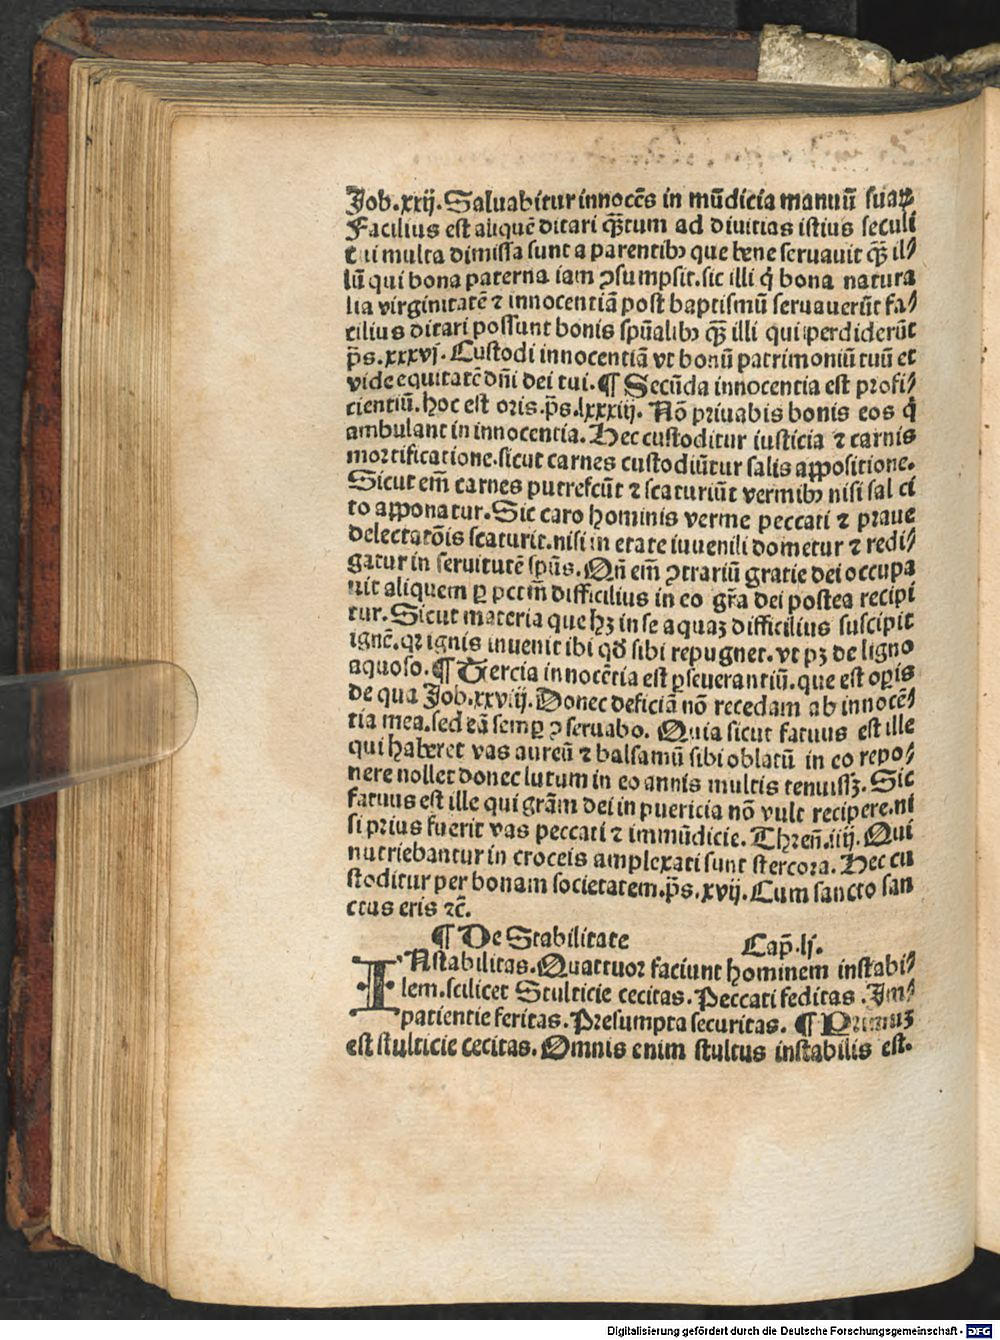 Job.xxij. Saluabitur innocēs in mūdicia manuū suaꝝ
Facilius est aliquē ditari qͣ̄tum ad diuitias istius seculi
cui multa dimissa sunt a parentibꝫ que bene seruauit qͣ̄ il⸗
lū qui bona paterna iam ꝯsumpsit. sic illi q̇ bona natura
lia virginitatē ⁊ innocentiā post baptismū seruauerūt fa⸗
cilius ditari possunt bonis spūalibꝫ qͣ̄ illi qui perdiderūt
p̄s.xxxvj. Custodi innocentiā vt bonū patrimoniū tuū et
vide equitatē dn̄i dei tui. ¶ Secūda innocentia est profi⸗
cientiū. hoc est oris. p̄s.lxxxiij. Nō priuabis bonis eos q̇
ambulant in innocentia. Hec custoditur iusticia ⁊ carnis
mortificatione. sicut carnes custodiūtur salis appositione.
Sicut em̄ carnes putrefcūt ⁊ scaturiūt vermibꝫ nisi sal ci
to apponatur. Sic caro hominis verme peccati ⁊ praue
delectatōis scaturit. nisi in etate iuuenili dometur ⁊ redi⸗
gatur in seruitutē spūs. Qn̄ em̄ ꝯtrariū gratie dei occupa
uit aliquem ꝑ pctm̄ difficilius in eo gr̄a dei postea recipi
tur. Sicut materia que hꝫ in se aquaꝫ difficilius suscipit
ignē. qꝛ ignis inuenit ibi qd̄ sibi repugnet. vt pꝫ de ligno
aquoso. ¶ Tercia innocētia est ꝑseuerantiū. que est oꝑis
de qua Job.xxvij. Donec deficiā nō recedam ab innocē⸗
tia mea. sed eā semꝑ ꝯseruabo. Quia sicut fatuus est ille
qui haberet vas aureū ⁊ balsamū sibi oblatū in eo repo⸗
nere nollet donec lutum in eo annis multis tenuissꝫ. Sic
fatuus est ille qui grām dei in puericia nō vult recipere. ni
si prius fuerit vas peccati ⁊ immūdicie. Thren̄.iiij. Qui
nutriebantur in croceis amplexati sunt stercora. Hec cu
stoditur per bonam societatem. p̄s.xvij. Cum sancto san
ctus eris ⁊c̄.
¶ De Stabilitate Cap̄.lj.
INstabilitas. Quattuor faciunt hominem instabi⸗
lem. scilicet Stulticie cecitas. Peccati feditas. Im⸗
patientie feritas. Presumpta securitas. ¶ Primuꝫ
est stulticie cecitas. Omnis enim stultus instabilis est.
Digitalisierung gefördert durch die Deutsche Forschungsgemeinschaft - DFG